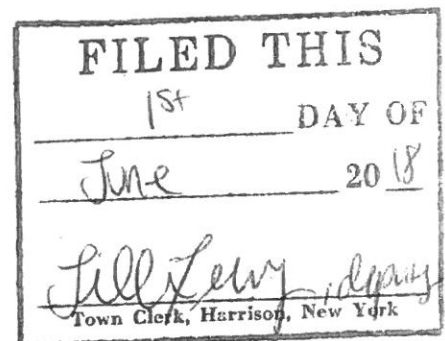 FILED THIS
1st DAY OF
June 2018
Jill Levy, deputy
Town Clerk, Harrison, New York